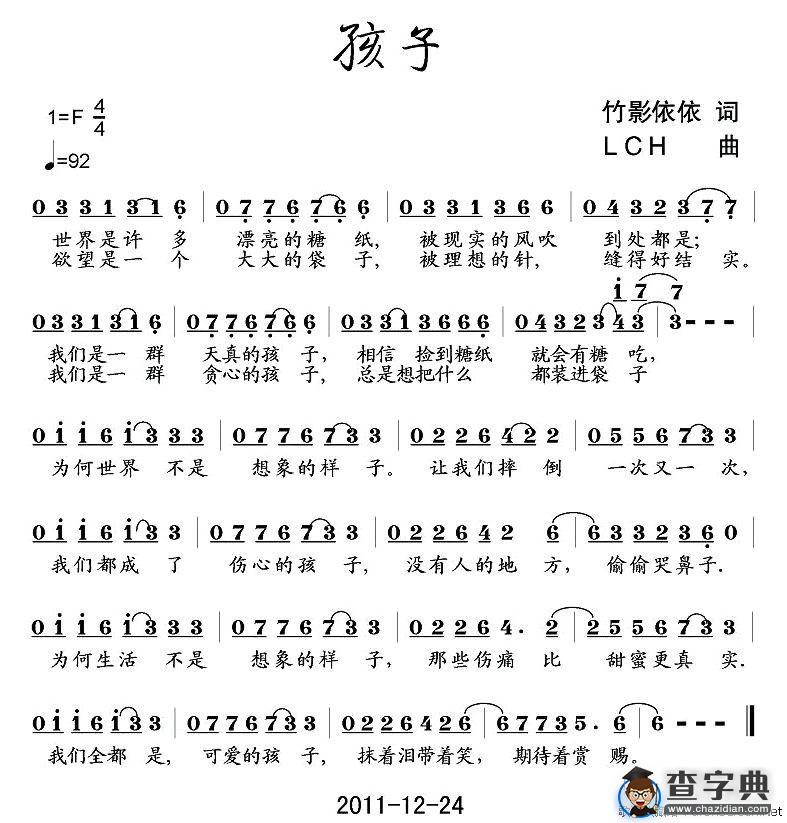 孩子
1=F 4/4
竹影依依 词
♩=92
LCH 曲
0331 316 | 0776 766 | 0331 366 | 0432 377 |
世界是许 多 漂亮的糖 纸, 被现实的风吹 到处都是;
欲望是一 个 大大的袋 子, 被理想的针, 缝得好结 实。
i 7 7
0331316 | 0776766 | 03313666 | 0432343 | 3--- |
我们是一 群 天真的孩 子, 相信 捡到糖纸 就会有糖 吃,
我们是一 群 贪心的孩 子, 总是想把什么 都装进袋 子
0ii6 i333 | 0776 733 | 0226 422 | 0556 733 |
为何世界 不是 想象的样 子。 让我们摔 倒 一次又一 次,
0ii6 i333 | 0776733 | 022642 6 | 6332360 |
我们都成 了 伤心的孩 子, 没有人的地 方, 偷偷哭鼻子.
0ii6 i333 | 0776 733 | 02264. 2 | 2556733 |
为何生活 不是 想象的样 子, 那些伤痛 比 甜蜜更真 实.
0ii6i33 | 0776733 | 02264266 | 67735. 6 | 6---
我们全都 是, 可爱的孩 子, 抹着泪带着笑, 期待着赏 赐。
2011-12-24
查字典
www.chazidian.com